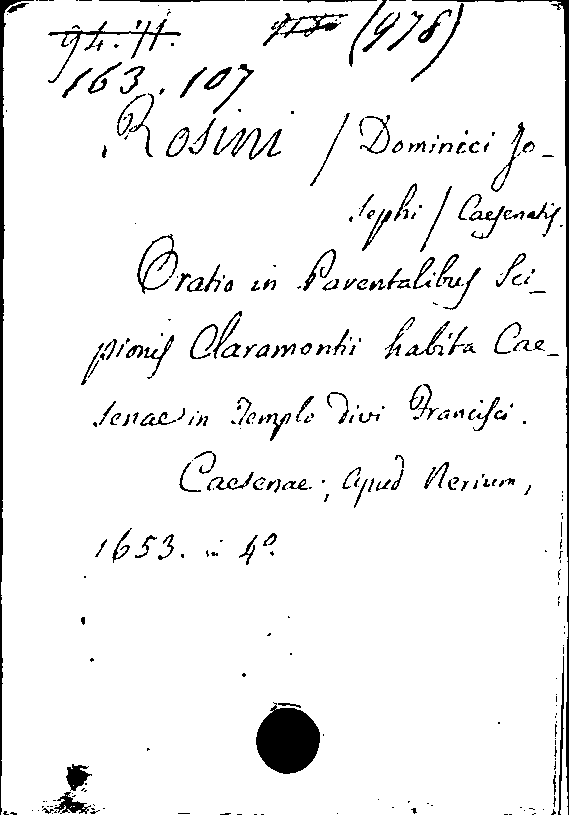 94.H. (978)
163.107
Rosini / Dominici Jo-
sephi / Caesenatis.
Oratio in Parentalibus Sci-
pionis Claramontii habita Cae-
senae in Templo Divi Francisci.
Caesenae; apud Nerium,
1653. in 4º.